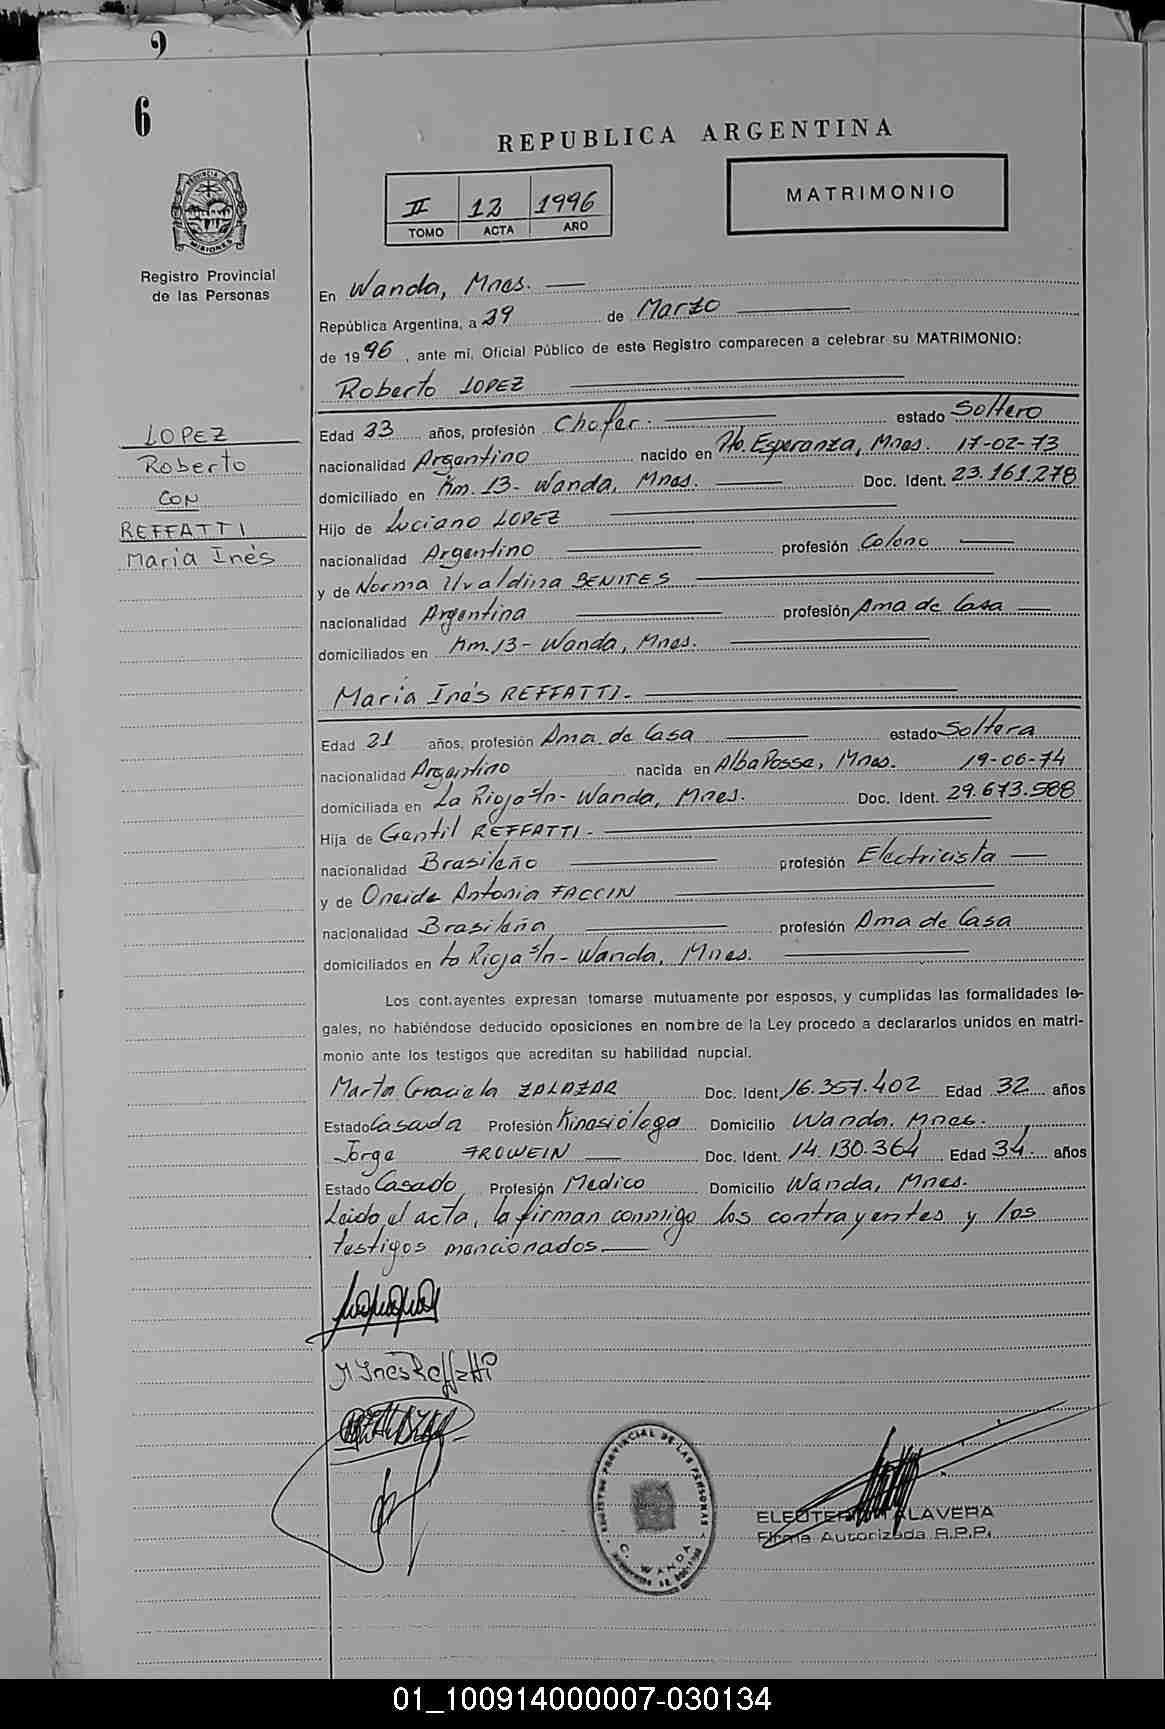 6
REPUBLICA ARGENTINA
II 12 1996
TOMO ACTA AÑO
MATRIMONIO
PROVINCIA DE MISIONES
Registro Provincial
de las Personas
LOPEZ
Roberto
CON
REFFATTI
María Inés
En Wanda, Mnes.
República Argentina, a 29 de Marzo
de 1996, ante mí, Oficial Público de este Registro comparecen a celebrar su MATRIMONIO:
Roberto LOPEZ
Edad 23 años, profesión Chofer. estado Soltero
nacionalidad Argentino nacido en Pto. Esperanza, Mnes. 17-02-73
domiciliado en Km. 13- Wanda, Mnes. Doc. Ident. 23.161.278
Hijo de Luciano LOPEZ
nacionalidad Argentino profesión Colono
y de Norma Uvaldina BENITES
nacionalidad Argentina profesión Ama de Casa
domiciliados en Km. 13- Wanda, Mnes.
María Inés REFFATTI.
Edad 21 años, profesión Ama de Casa estado Soltera
nacionalidad Argentino nacida en Alba Posse, Mnes. 19-06-74
domiciliada en La Rioja s/n- Wanda, Mnes. Doc. Ident. 29.673.588
Hija de Gentil REFFATTI-
nacionalidad Brasileño profesión Electricista
y de Oneide Antonia FACCIN
nacionalidad Brasileña profesión Ama de Casa
domiciliados en La Rioja s/n- Wanda, Mnes.
Los contrayentes expresan tomarse mutuamente por esposos, y cumplidas las formalidades le-
gales, no habiéndose deducido oposiciones en nombre de la Ley procedo a declararlos unidos en matri-
monio ante los testigos que acreditan su habilidad nupcial.
Marta Graciela ZALAZAR Doc. Ident. 16.357.402 Edad 32 años
Estado Casada Profesión Kinesióloga Domicilio Wanda, Mnes.
Jorge FROWEIN Doc. Ident. 14.130.364 Edad 34. años
Estado Casado Profesión Medico Domicilio Wanda, Mnes.
Leído el acta, la firman conmigo los contrayentes y los
testigos mencionados.
M Inés Reffatti
REGISTRO PROVINCIAL DE LAS PERSONAS
WANDA
ELEUTERIO TALAVERA
Firma Autorizada R.P.P.
01_100914000007-030134